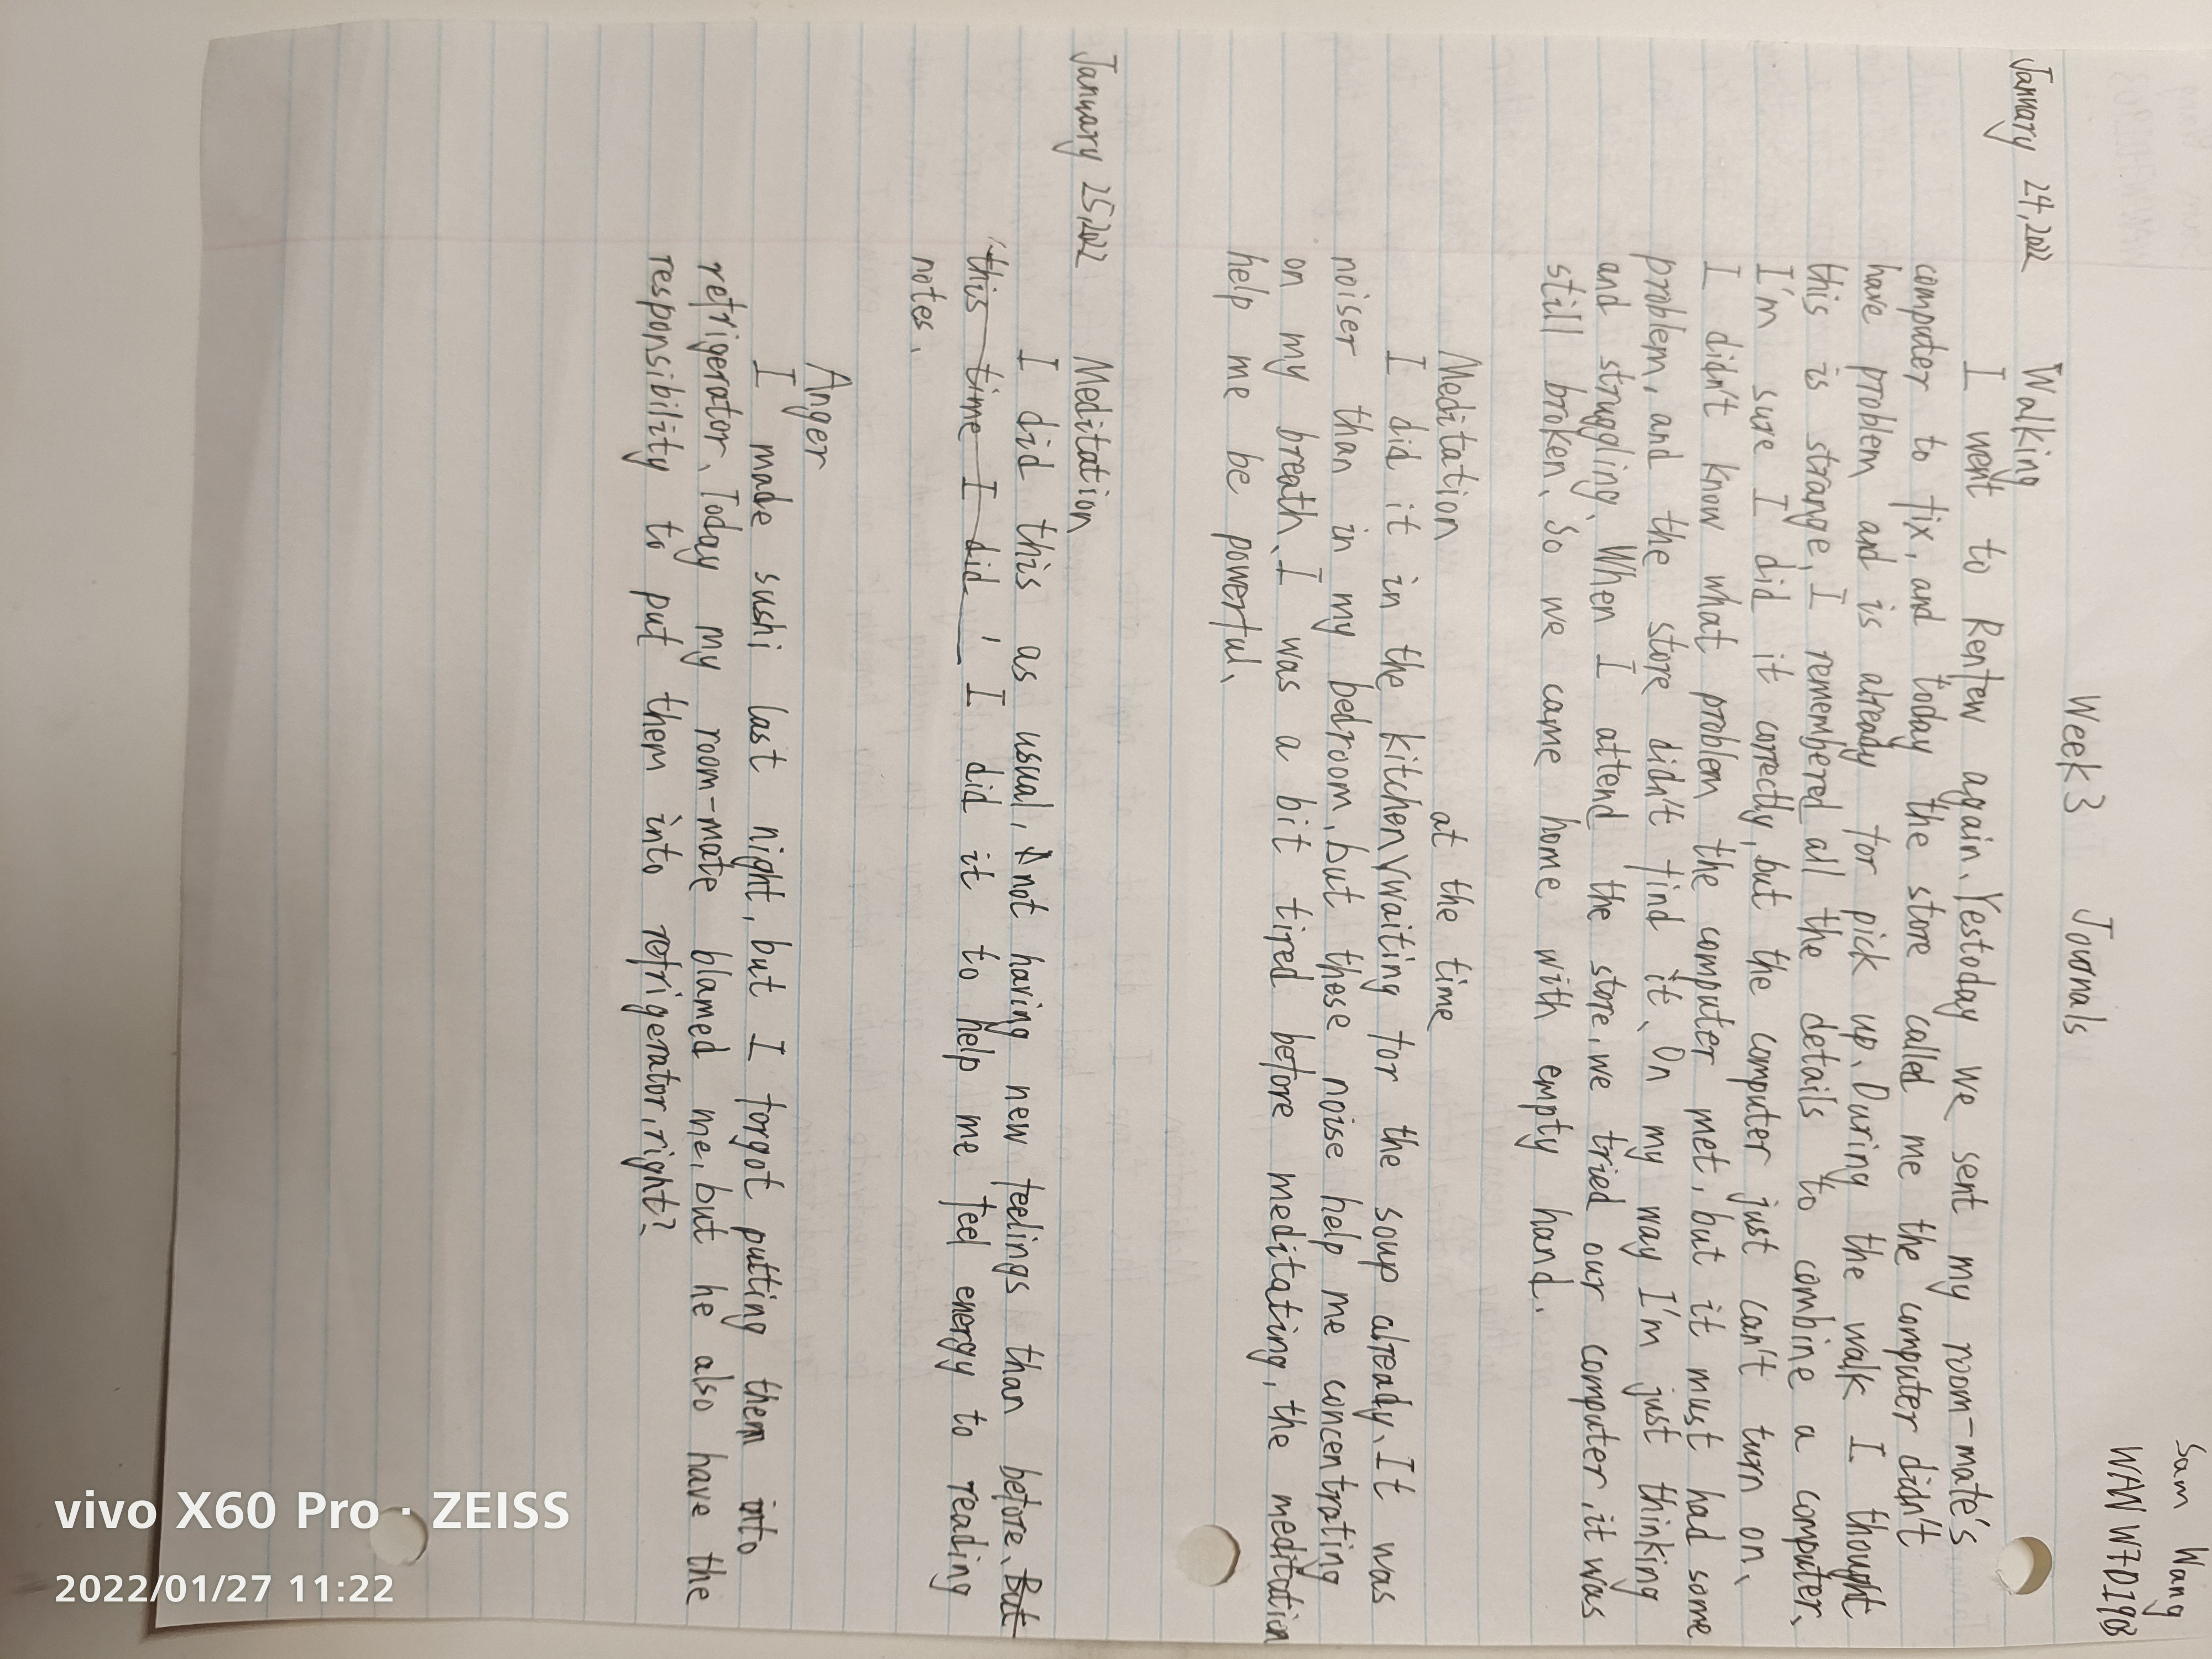 Sam Wang
WAWW7D1903
Week3 Journals
January 24, 2022 Walking
I went to Renten again. Yestoday we sent my room-mate's
computer to fix, and today the store called me the computer didn't
have problem and is already for pick up. During the walk I thought
this is strange, I remembered all the details to combine a computer.
I'm sure I did it correctly, but the computer just can't turn on.
I didn't know what problem the computer met, but it must had some
problem, and the store didn't find it. On my way I'm just thinking
and struggling. When I attend the store, we tried our computer, it was
still broken. So we came home with empty hand.
Meditation
at the time
I did it in the kitchen waiting for the soup already. It was
noiser than in my bedroom, but those noise help me concentrating
on my breath. I was a bit tired before meditating, the meditation
help me be powerful.
January 25, 2022 Meditation
I did this as usual, not having new feelings than before. But
this time I did I did it to help me feel energy to reading
notes.
Anger
I made sushi last night, but I forgot putting them into
refrigerator. Today my room-mate blamed me, but he also have the
responsibility to put them into refrigerator, right?
vivo X60 Pro · ZEISS
2022/01/27 11:22